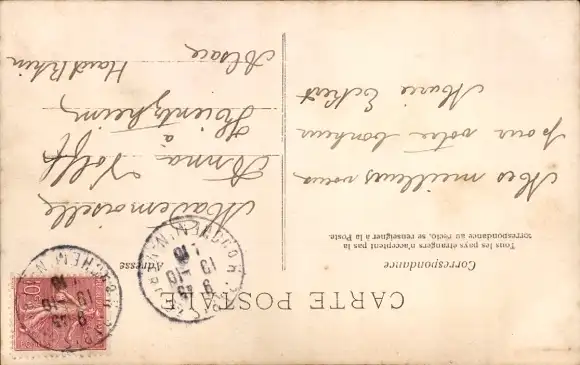 CARTE POSTALE
Correspondance
Tous les pays étrangers n'acceptent pas la
correspondance au recto, se renseigner à la Poste.
Adresse
Mes meilleurs voeux
pour votre bonheur
Marie Eckert
Mademoiselle
Anna Volff
à
Kientzheim
Haut Rhin
Alsace
10c